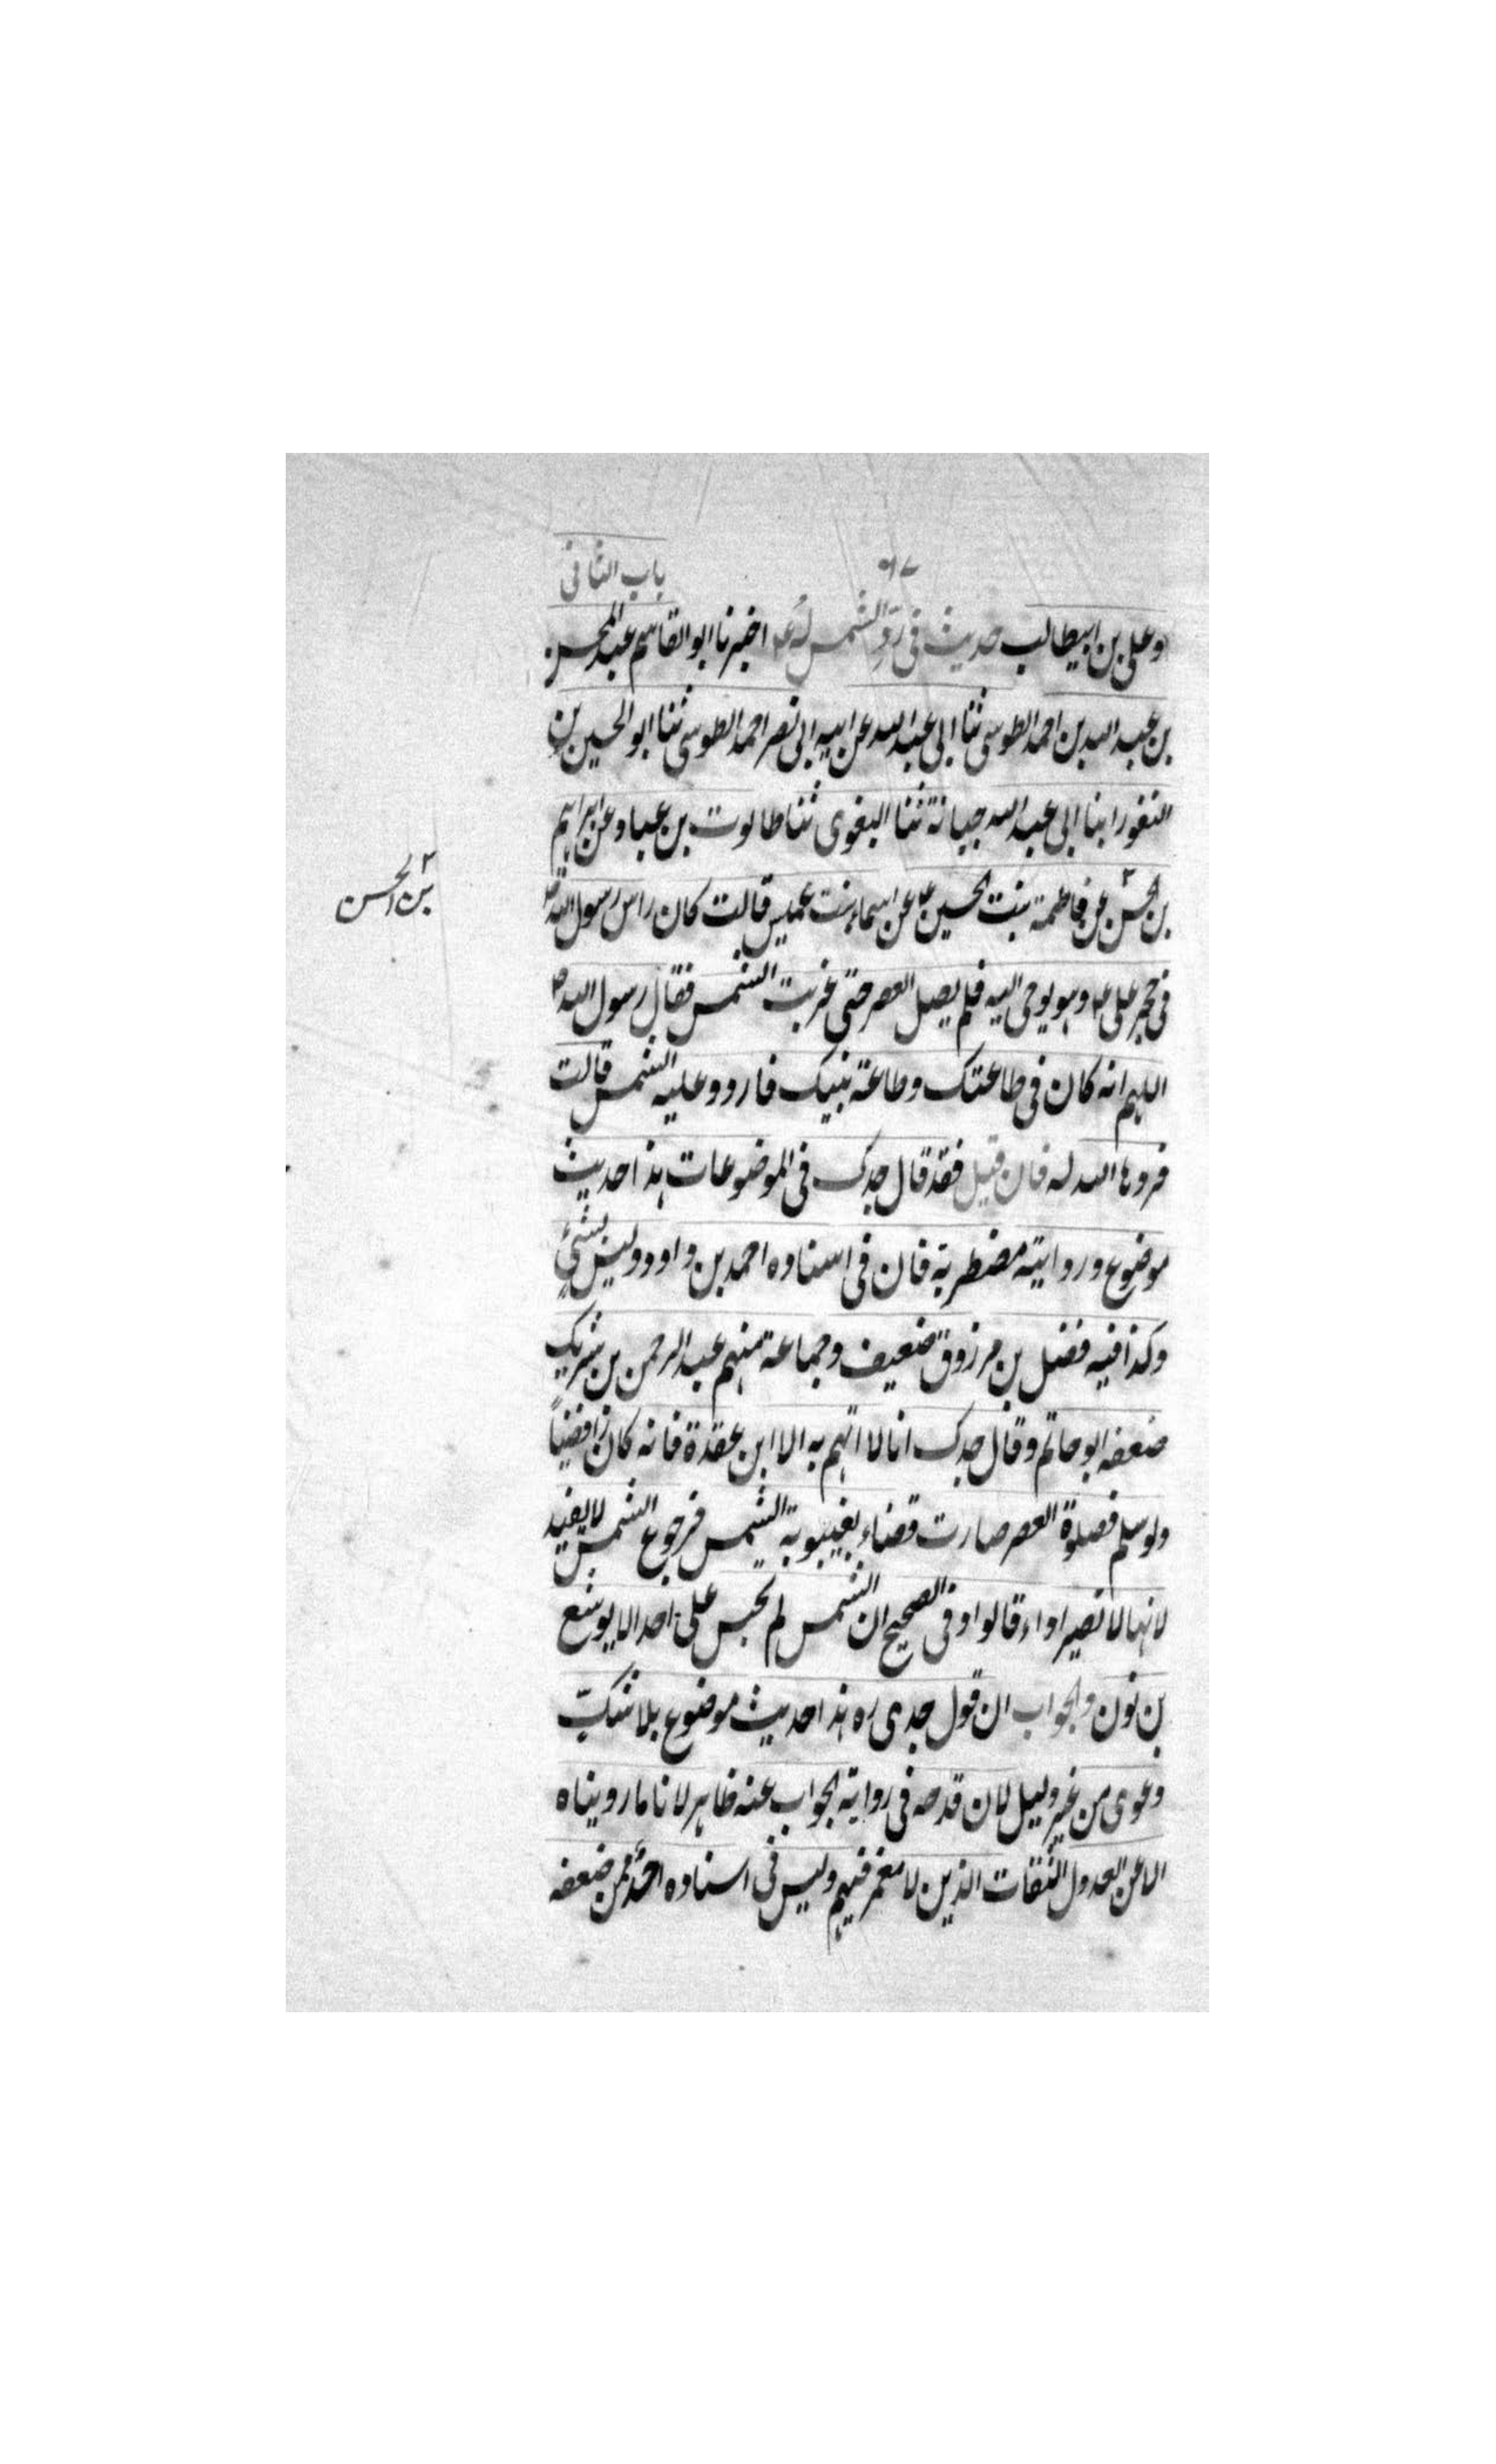 باب الثانى
وعلى بن ابيطالب حديث فى ردّ الشمس له ع اخبرنا ابو القاسم عبد المحسن
بن عبد الله بن احمد الطوسى ثنا ابى عبد الله عن ابيه ابى نصر احمد الطوسى ثنا ابو الحسين بن
النقور ابنا ابى عبد الله حبانة ثنا البغوى ثنا طالوت بن عباد عن ابراهيم
بن الحسن عن فاطمة بنت الحسين ع عن اسماء بنت عميس قالت كان راس رسول الله ص
بن الحسن
فى حجر على ع وهو يوحى اليه فلم يصل العصر حتى غربت الشمس فقال رسول الله ص
اللهم انه كان فى طاعتك وطاعة نبيك فاردد عليه الشمس قالت
فردها الله له فان قيل فقد قال جدك فى الموضوعات هذا حديث
موضوع وروايته مضطربة فان فى اسناده احمد بن داود وليس بشئ
وكذا فيه فضل بن مرزوق ضعيف وجماعة منهم عبد الرحمن بن شريك
ضعفه ابو حاتم وقال جدك انا لا اتهم به الا ابن عقدة فانه كان رافضياً
ولو سلم فصلوة العصر صارت قضاء بغيبوبة الشمس فرجوع الشمس لا يفيد
لانها لا تصير اداء قالوا وفى الصحيح ان الشمس لم تحبس على احد الا يوشع
بن نون والجواب ان قول جدى ره هذا حديث موضوع بلا شك
دعوى من غير دليل لان قدحه فى رواية الجواب عنه ظاهر لانا ما رويناه
الا عن العدول الثقات الذين لا مغمز فيهم وليس فى اسناده احد ممن ضعفه